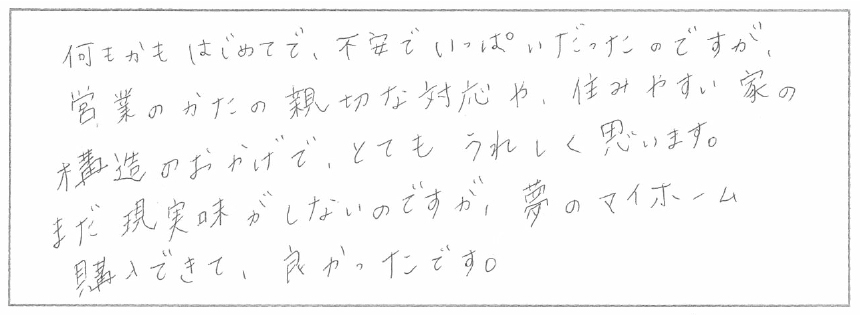 何もかもはじめてで、不安でいっぱいだったのですが、
営業のかたの親切な対応や、住みやすい家の
構造のおかげで、とてもうれしく思います。
まだ現実味がしないのですが、夢のマイホーム
購入できて、良かったです。